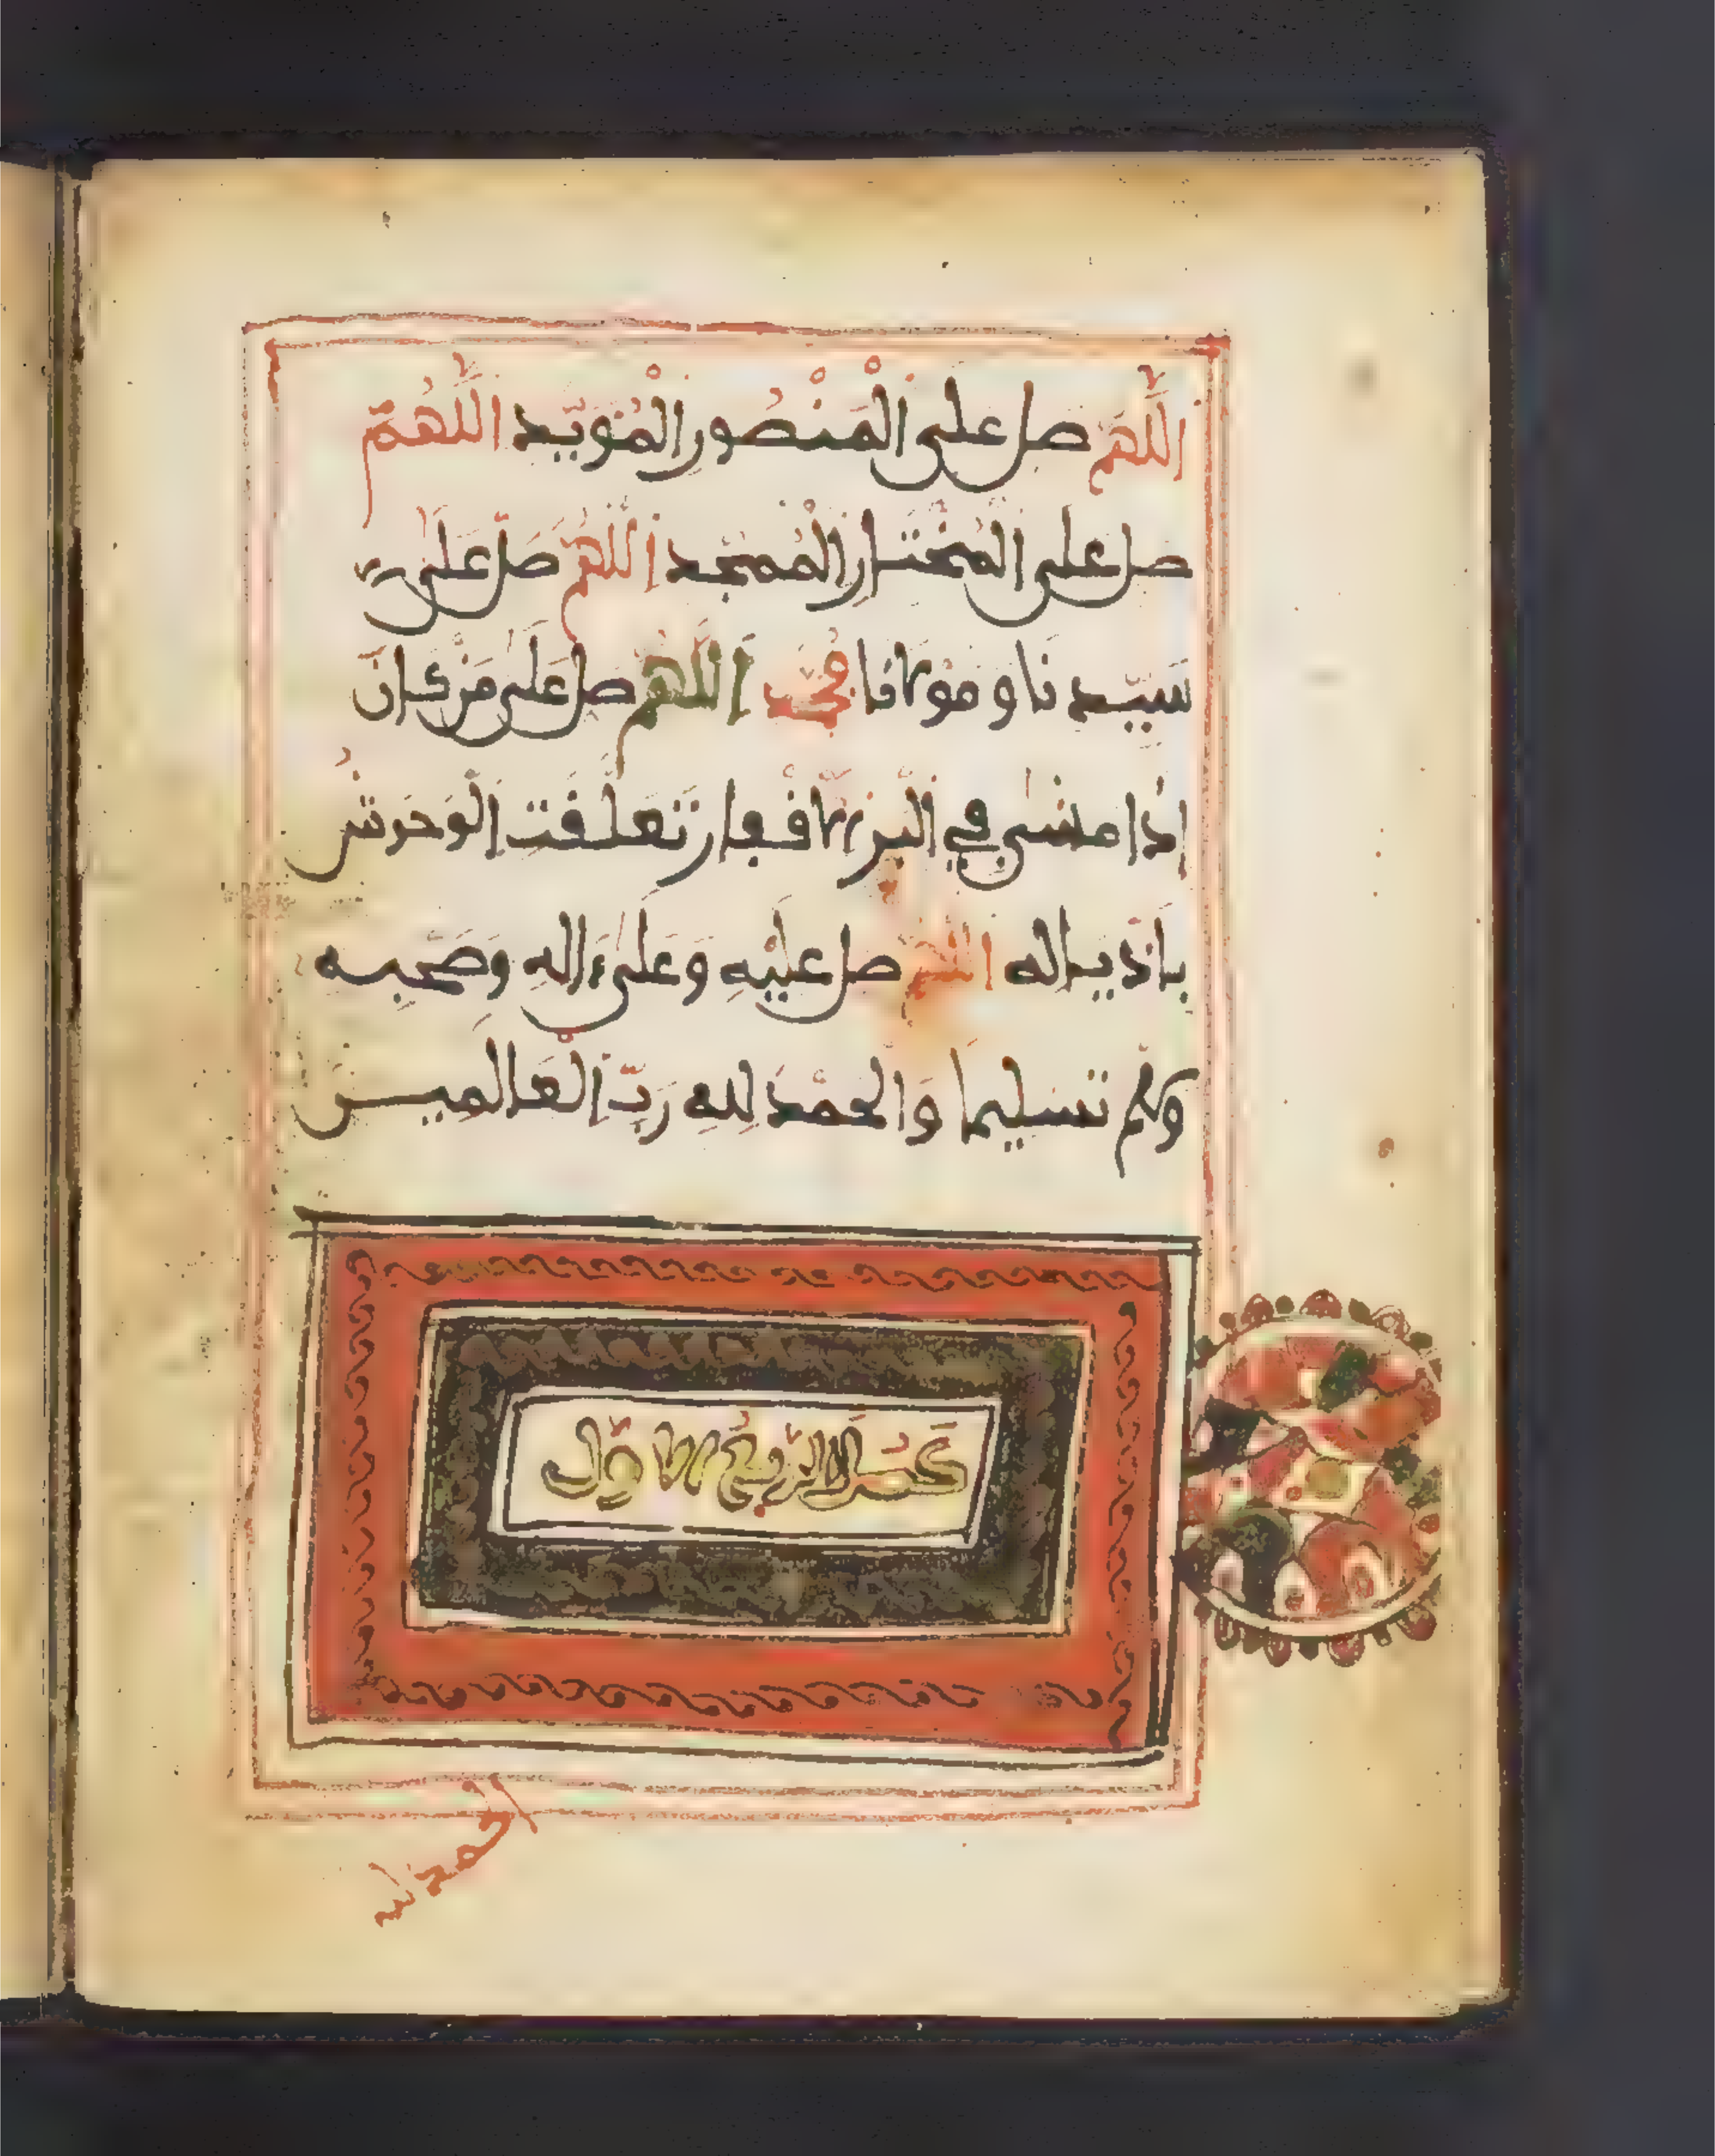 اللَّهُمَّ صل على المَنْصُور المُوَيَّد اللَّهُمَّ
صل على المُخْتَار المُمَجَّد اللَّهُمَّ صَلِّ عَلَى
سَيِّدِنَا وَمَوْلَانَا مُحَمَّد اللَّهُمَّ صل عَلَى مَن كَانَ
إِذَا مشى في البَرِّ الأَقْفَرِ تَعَلَّقَت الْوُحُوشُ
بِأَذْيَالِه اللَّهُمَّ صل عَلَيْهِ وَعَلَى ءَالِهِ وَصَحْبِهِ
وَسلم تَسْلِيما وَالحَمْدُ لِلهِ رَبِّ الْعَالَمِين
كَمُلَ الرُّبُعُ الأَوَّل
الحمد لله